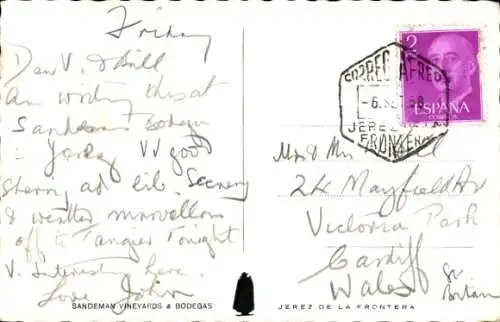 Friday
Dear V. & Bill
Am writing this at
Sandeman Bodega
Jerez VV good
Sherry ad lib. Scenery
& weather marvellous
off to Tangier Tonight
V. Interesting here.
Love John
SANDEMAN VINEYARDS & BODEGAS
2
ESPAÑA
CORREO AEREO
JEREZ DE LA
FRONTERA
Mr & Mrs
24 Mayfield Av
Victoria Park
Cardiff
Wales
Gr
Britain
JEREZ DE LA FRONTERA